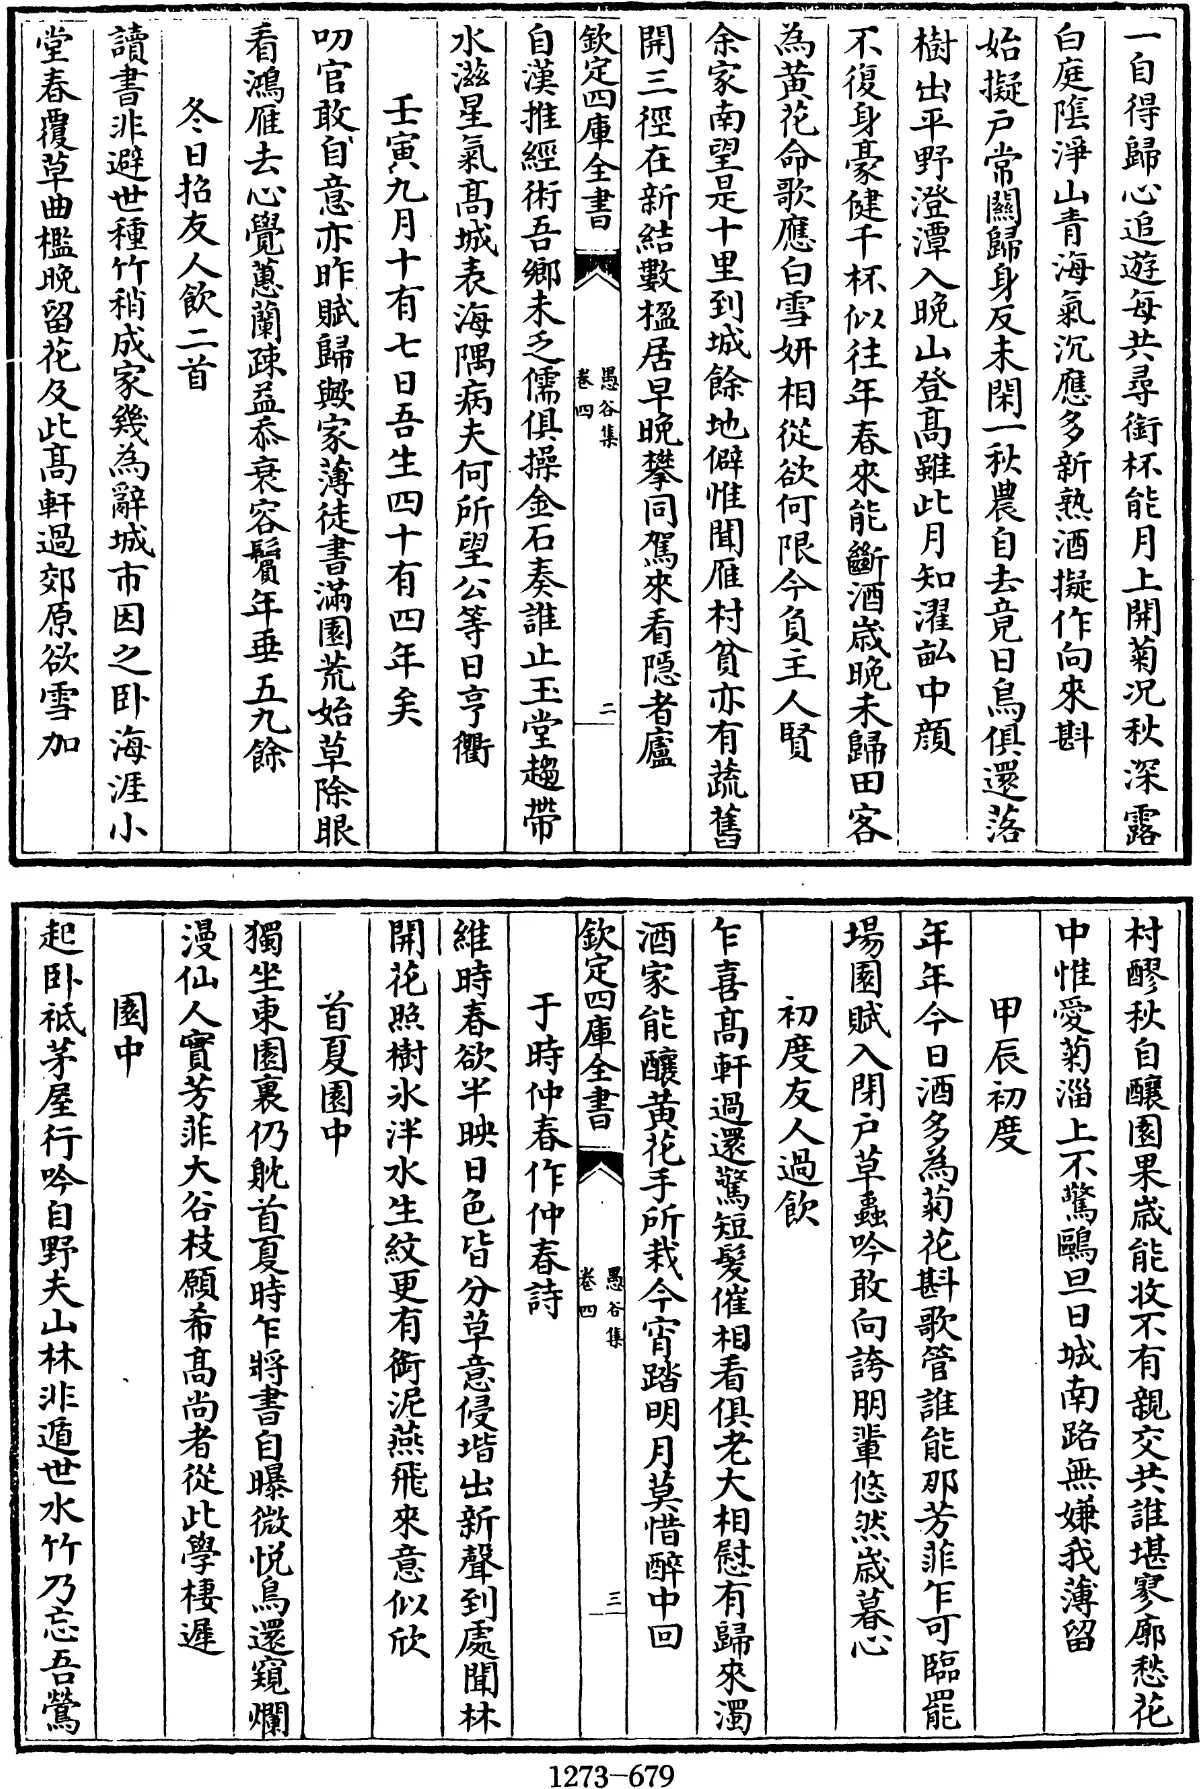 一自得歸心追遊每共尋銜杯能月上開菊況秋深露
白庭陰淨山青海氣沉應多新熟酒擬作向來斟
始擬戸常關歸身反未閑一秋農自去竟日鳥俱還落
樹出平野澄潭入晚山登髙雖此月知濯畝中顔
不復身豪健千杯似往年春來能斷酒歳晚未歸田客
為黄花命歌應白雪妍相從欲何限今負主人賢
余家南望是十里到城餘地僻惟聞雁村貧亦有蔬舊
開三徑在新結數楹居早晚攀同駕來看隠者廬
欽定四庫全書
愚谷集
卷四
二
自漢推經術吾鄉未乏儒俱操金石奏誰止玉堂趨帶
水滋星氣髙城表海隅病夫何所望公等日亨衢
壬寅九月十有七日吾生四十有四年矣
叨官敢自意亦昨賦歸歟家薄徒書滿園荒始草除眼
看鴻雁去心覺蕙蘭疎益忝衰容鬢年垂五九餘
冬日招友人飲二首
讀書非避世種竹稍成家幾為辭城市因之卧海涯小
堂春覆草曲檻晚留花及此髙軒過郊原欲雪加
村醪秋自釀園果歳能收不有親交共誰堪寥廓愁花
中惟愛菊淄上不驚鷗旦日城南路無嫌我薄留
甲辰初度
年年今日酒多為菊花斟歌管誰能那芳菲乍可臨罷
場園賦入閉戸草蟲吟敢向誇朋輩悠然歳暮心
初度友人過飲
乍喜髙軒過還驚短髮催相看俱老大相慰有歸來濁
酒家能釀黄花手所栽今宵踏明月莫惜醉中回
欽定四庫全書
愚谷集
卷四
三
于時仲春作仲春詩
維時春欲半映日色皆分草意侵堦出新聲到處聞林
開花照樹氷泮水生紋更有銜泥燕飛來意似欣
首夏園中
獨坐東園裏仍躭首夏時乍將書自曝微悦鳥還窺爛
漫仙人實芳菲大谷枝願希髙尚者從此學棲遲
園中
起卧祗茅屋行吟自野夫山林非遁世水竹乃忘吾鶯
1273—679